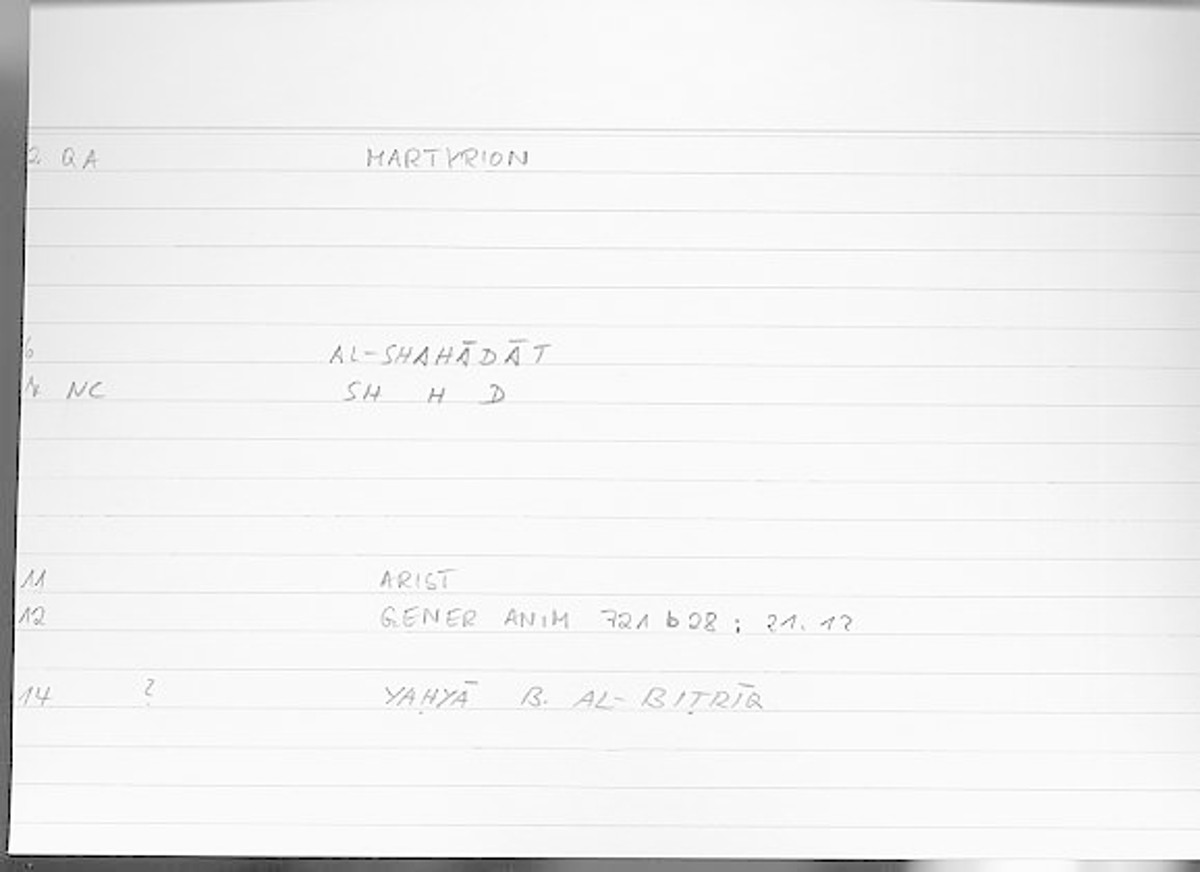 2 QA MARTYRION
6 AL-SHAHĀDĀT
NC SH H D
11 ARIST
12 GENER ANIM 721 b 28 ; 21.12
14 ? YAḤYĀ B. AL-BIṬRĪQ